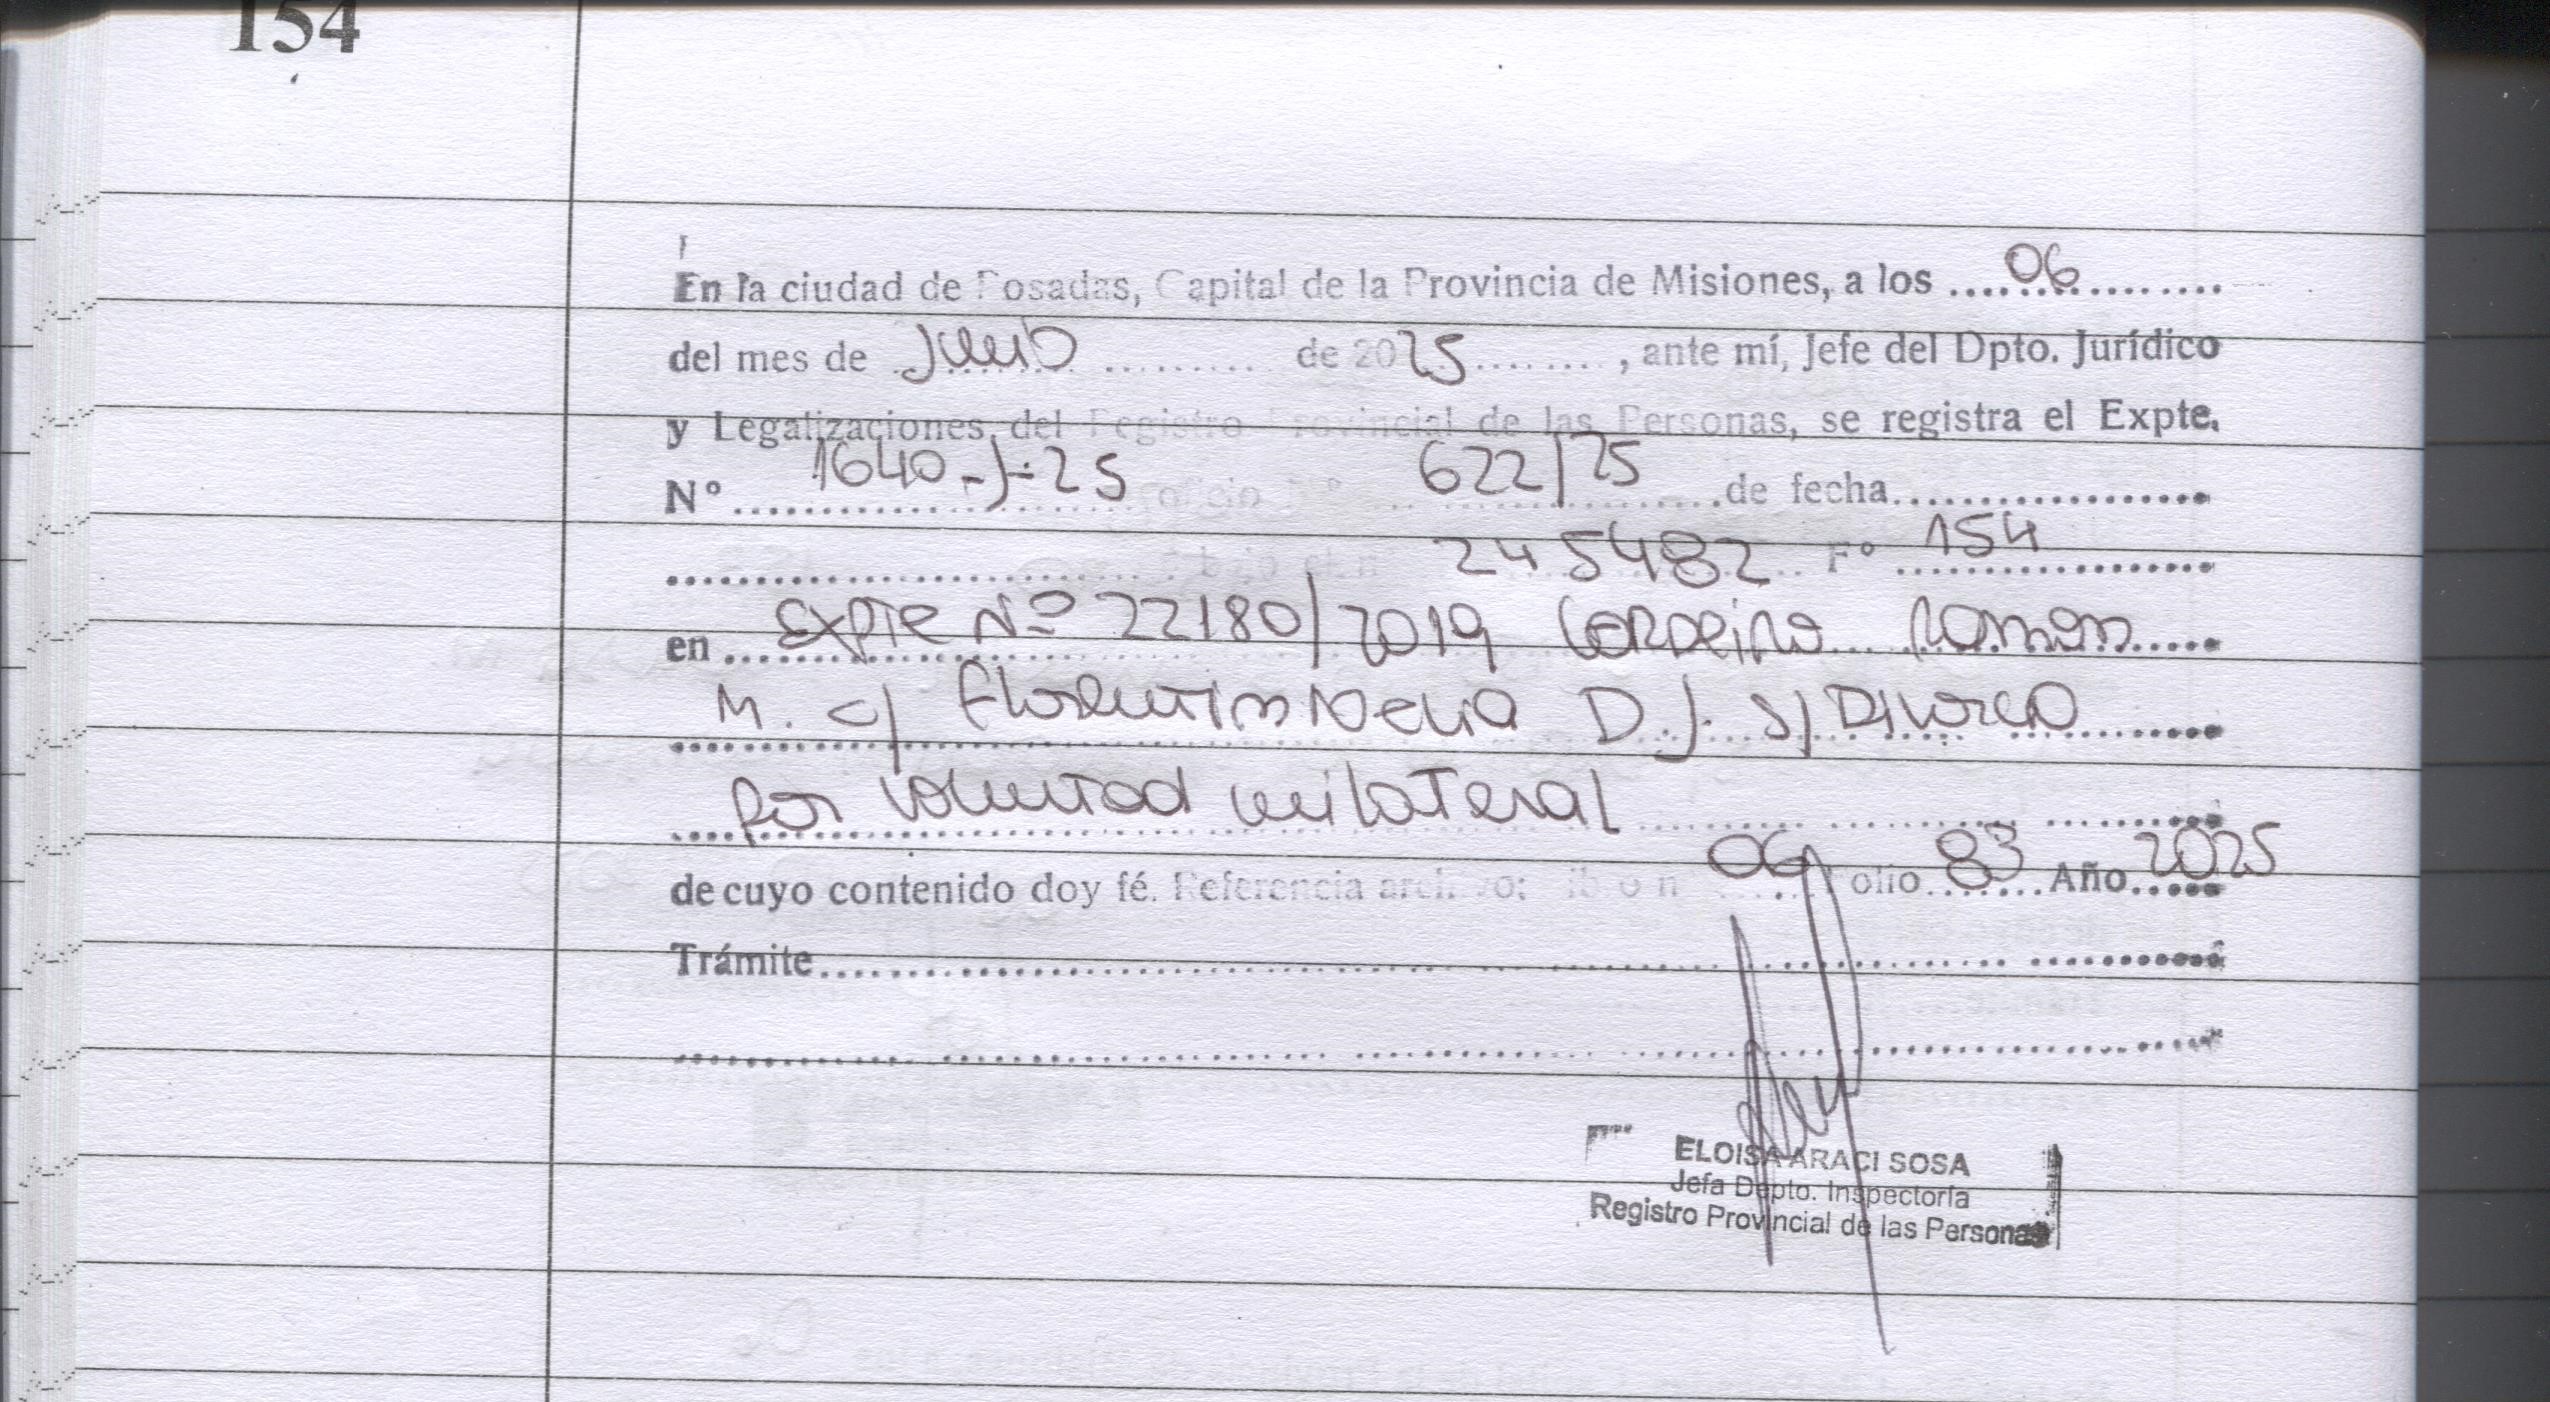 154
En la ciudad de Posadas, Capital de la Provincia de Misiones, a los ....06........
del mes de Junio .......... de 2025........, ante mí, Jefe del Dpto. Jurídico
y Legalizaciones del Registro Provincial de las Personas, se registra el Expte.
N° 1640-J-25 oficio N° 622/25 de fecha..................
bajo el n 245482 F° 154
en Expte Nº 22180/2019 Cordeiro Ramon
M. c/ Florentin Delia D.J. s/ Divorcio
por voluntad unilateral
de cuyo contenido doy fé. Referencia archivo: libro n 06 Folio 83 Año 2025
Trámite..................
ELOISA ARACI SOSA
Jefa Dpto. Inspectoría
Registro Provincial de las Personas